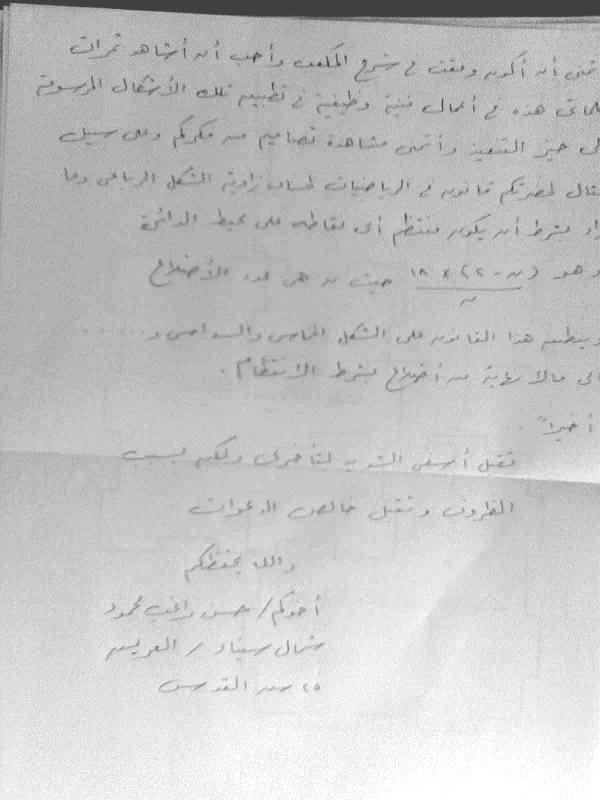 أتمنى أن أكون وفقت في شرح المكعب وأحب أن أشاهد ثمرات
هذه في أعمال فنية وظيفية في تطبيق تلك الأشكال المرسومة
حيز التنفيذ وأتمنى مشاهدة تصاميم من فكركم وعلى سبيل
لحضرتكم قانون في الرياضيات لحساب زاوية الشكل الرباعي وما
بشرط أن يكون منتظم أي نقاطه على محيط الدائرة
وهو (ن - ٢) × ١٨٠ / ن حيث ن هي عدد الأضلاع
وينطبق هذا القانون على الشكل الخماسي والسداسي و.......
مالا نهاية من أضلاع بشرط الانتظام.
أخيراً
تقبل أسفي الشديد لتأخري ولكن بسبب
الظروف وتقبل خالص الدعوات
والله يحفظكم
أخوكم / حسن راغب محمود
شمال سيناء / العريش
٢٥ القدس